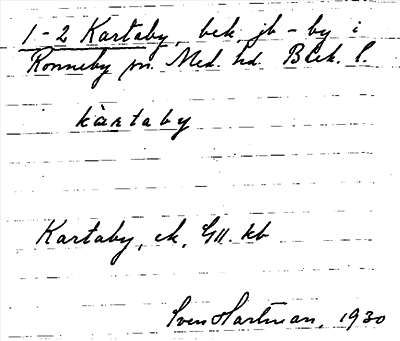 1-2 Kartaby, bek. jb-by i
Ronneby sn. Med. hd. Blek. l.
kàrtaby
Kartaby, ek, Gll. kb
Sven Hartman, 1930